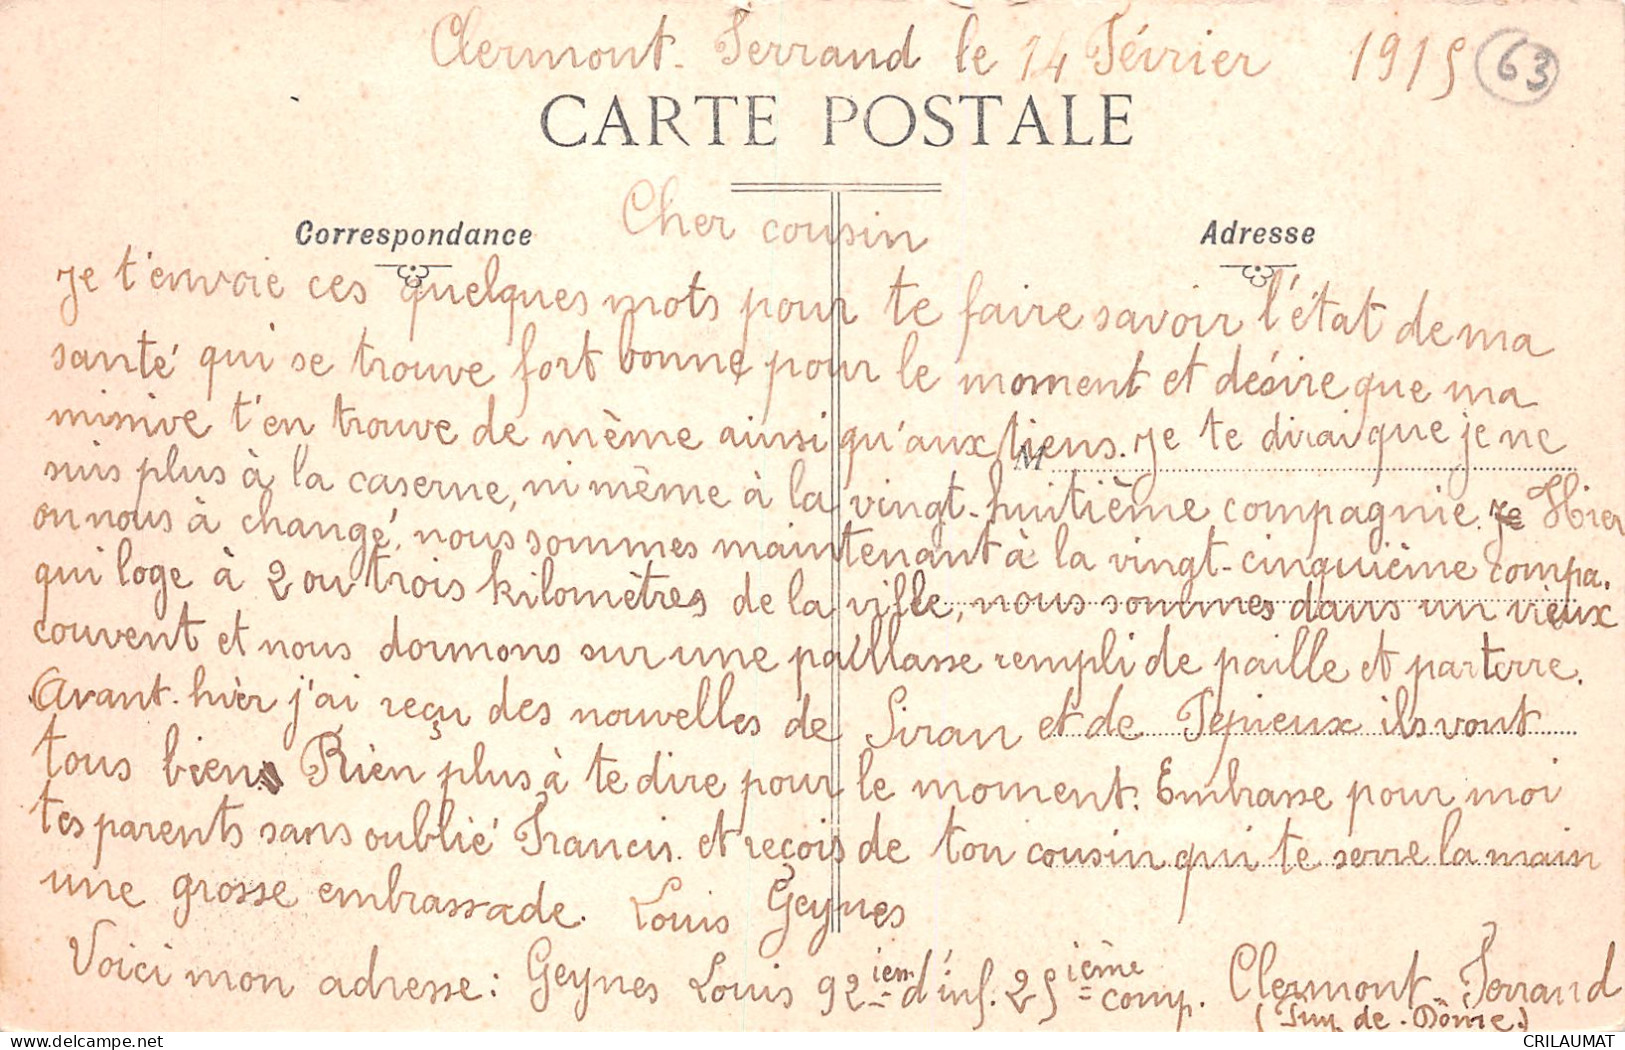 Clermont-Ferrand le 14 Février 1915 63
CARTE POSTALE
Cher cousin
Correspondance
Adresse
Je t'envoie ces quelques mots pour te faire savoir l'état de ma
santé qui se trouve fort bonne pour le moment et désire que ma
missive t'en trouve de même ainsi qu'aux tiens. Je te dirai que je ne
M
suis plus à la caserne, ni même à la vingt-huitième compagnie. Je Hier
on nous à changé, nous sommes maintenant à la vingt-cinquième compa.
qui loge à 2 ou trois kilomètres de la ville, nous sommes dans un vieux
couvent et nous dormons sur une paillasse rempli de paille et par terre.
Avant-hier j'ai reçu des nouvelles de Siran et de Pepieux ils vont
tous bien. Rien plus à te dire pour le moment. Embrasse pour moi
tes parents sans oublié Francis. et reçois de ton cousin qui te serre la main
une grosse embrassade. Louis Geynes
Voici mon adresse : Geynes Louis 92ième d'inf. 25ième comp. Clermont-Ferrand
(Puy-de-Dôme)
CRILAUMAT